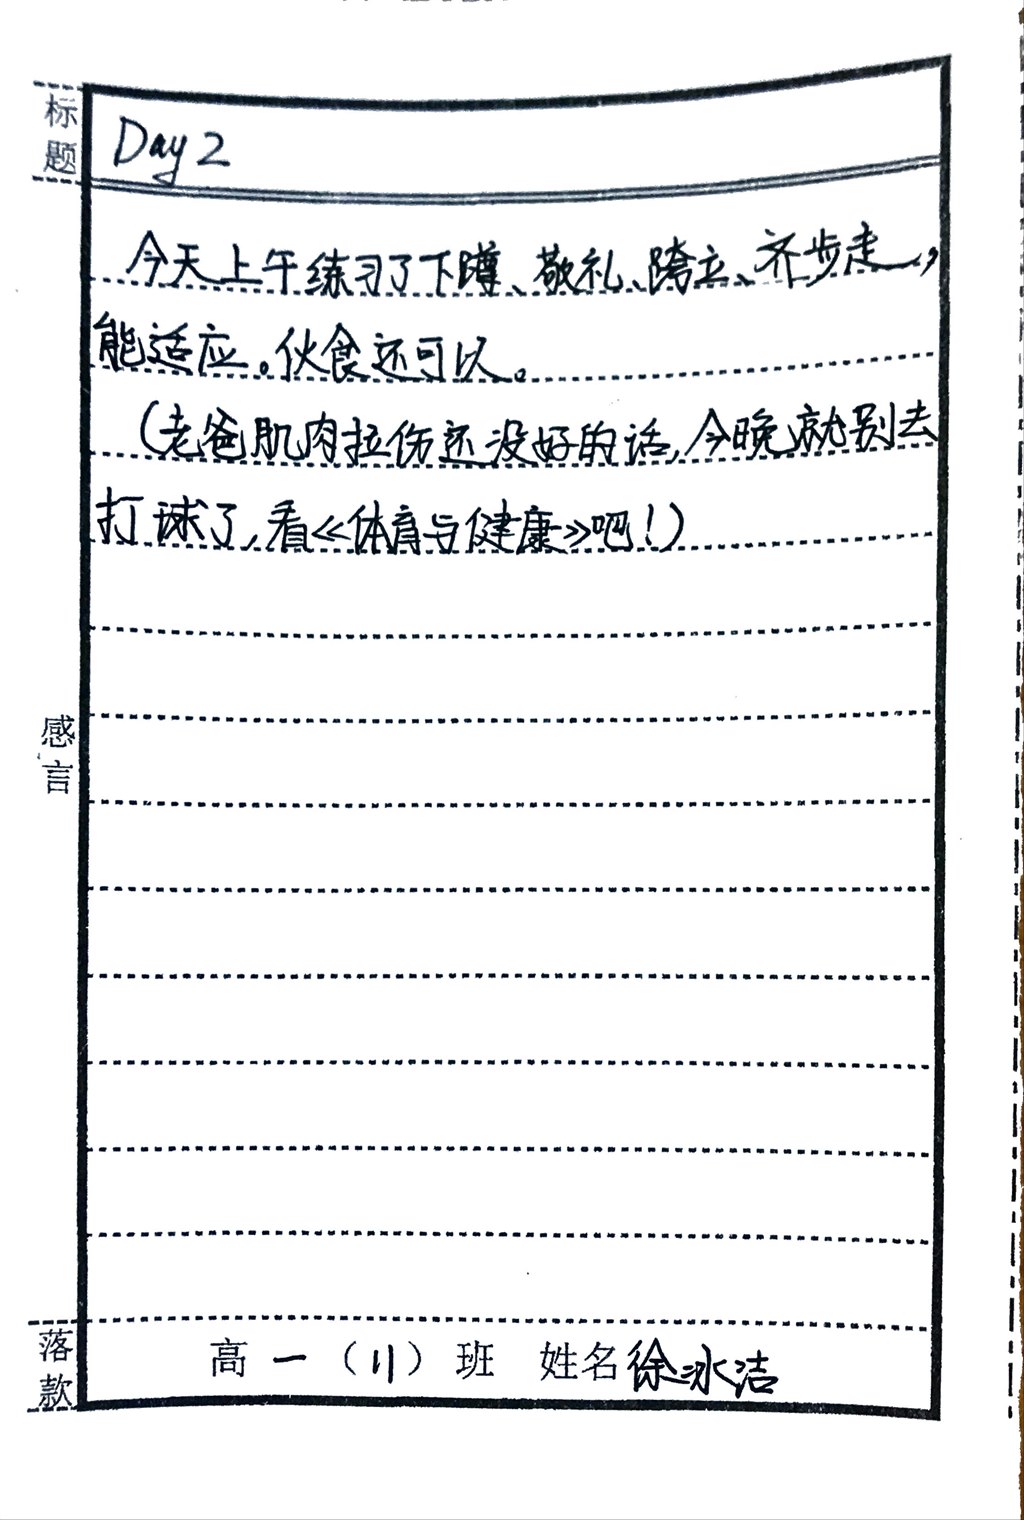 标题
Day 2
今天上午练习了下蹲、敬礼、跨立、齐步走，
能适应。伙食还可以。
（老爸肌肉拉伤还没好的话，今晚就别去
打球了，看《体育与健康》吧！）
感言
落款
高一（11）班 姓名徐冰洁